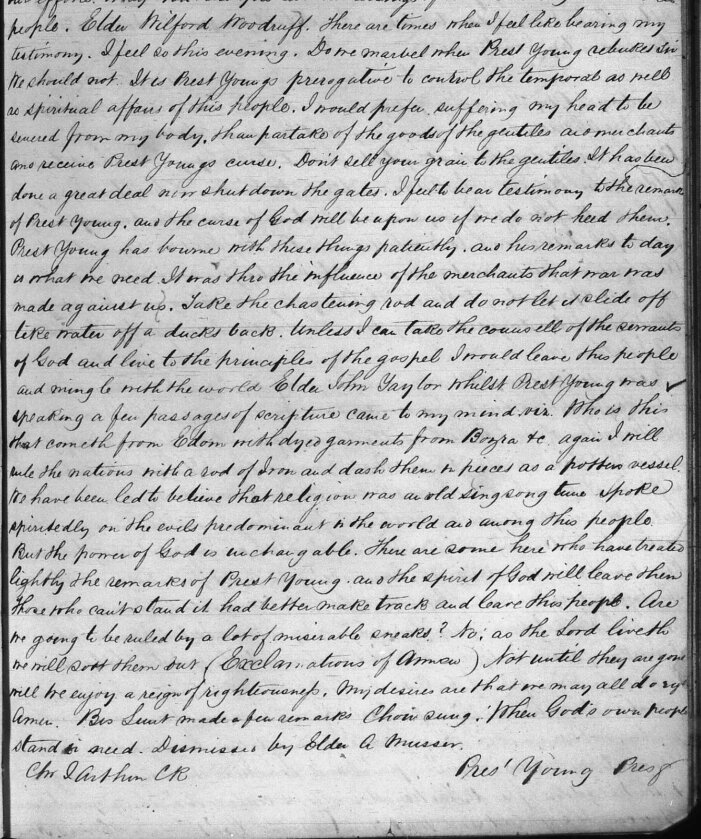 people. Elder Wilford Woodruff. There are times when I feel like bearing my
testimony. I feel so this evening. Do we marvel when Prest Young rebukes sin
We should not. It is Prest Youngs prerogative to control the temporal as well
as spiritual affairs of this people. I would prefer suffering my head to be
severed from my body, than partake of the goods of the gentiles and merchants
and receive Prest Youngs curse. Don't sell your grain to the gentiles. It has been
done a great deal now shut down the gates. I feel to bear testimony to the remarks
of Prest Young, and the curse of God will be upon us if we do not heed them.
Prest Young has bourne with these things patiently. and his remarks to day
is what we need. It was thro the influence of the merchants that war was
made against us. Take the chastening rod and do not let it slide off
like water off a ducks back. Unless I can take the counsell of the servants
of God and live to the principles of the gospel I would leave this people
and mingle with the world Elder John Taylor whilst Prest Young was
speaking a few passages of scripture came to my mind. viz. Who is this
that cometh from Edom with dyed garments from Bozra &c. again I will
rule the nations with a rod of Iron and dash them in pieces as a potters vessel.
We have been led to believe that religion was an old sing song tune spoke
spiritedly on the evils predominant in the world and among this people
But the power of God is unchangable. There are some here who have treated
lightly the remarks of Prest Young. and the spirit of God will leave them
Those who can't stand it had better make track and leave this people. Are
we going to be ruled by a lot of miserable sneaks? No; as the Lord liveth
we will sort them out (Exclamations of Amen) Not until they are gone
will we enjoy a reign of righteousness. My desires are that we may all do right
Amen. Bis Lunt made a few remarks Choir sung. "When God's own people
stand in need. Dismissed by Elder A Musser.
Chr J Arthur CK Pres' Young Presg